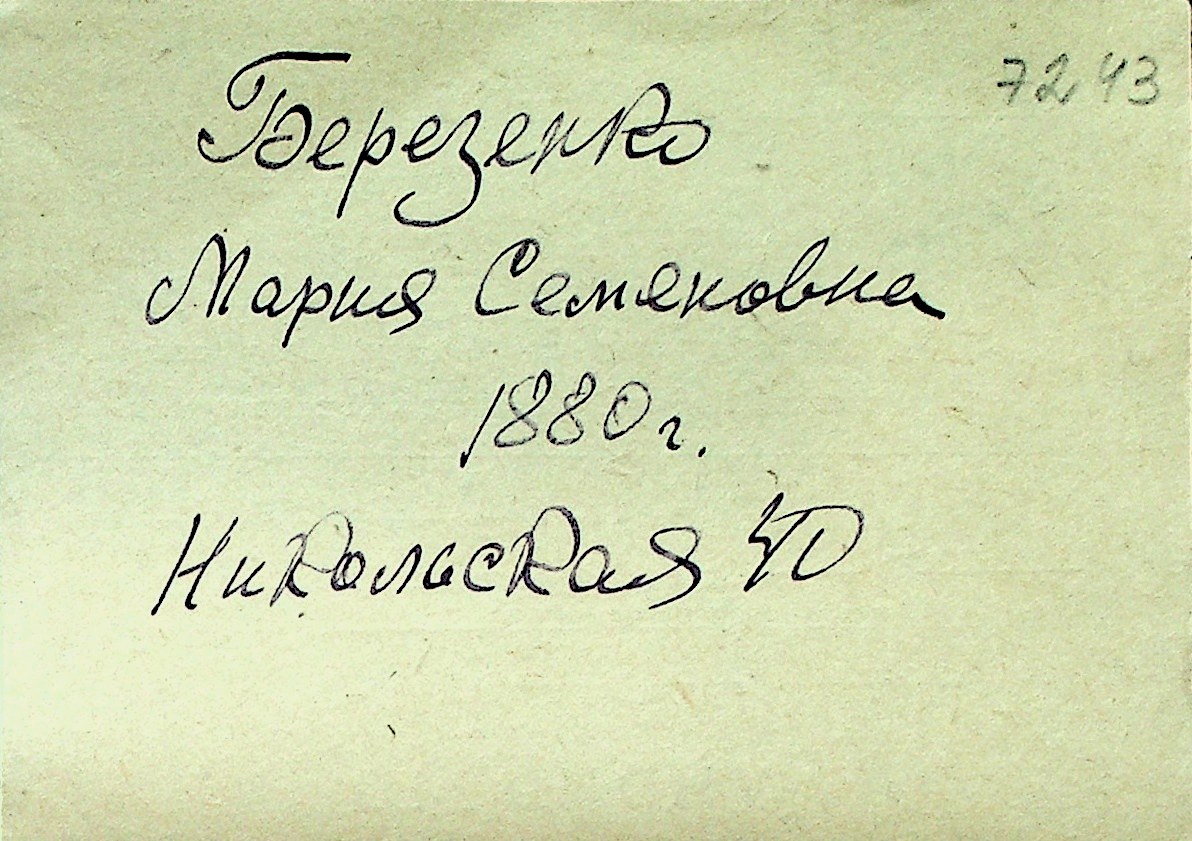 7243
Березенко
Мария Семяновна
1880 г.
Никольская 40